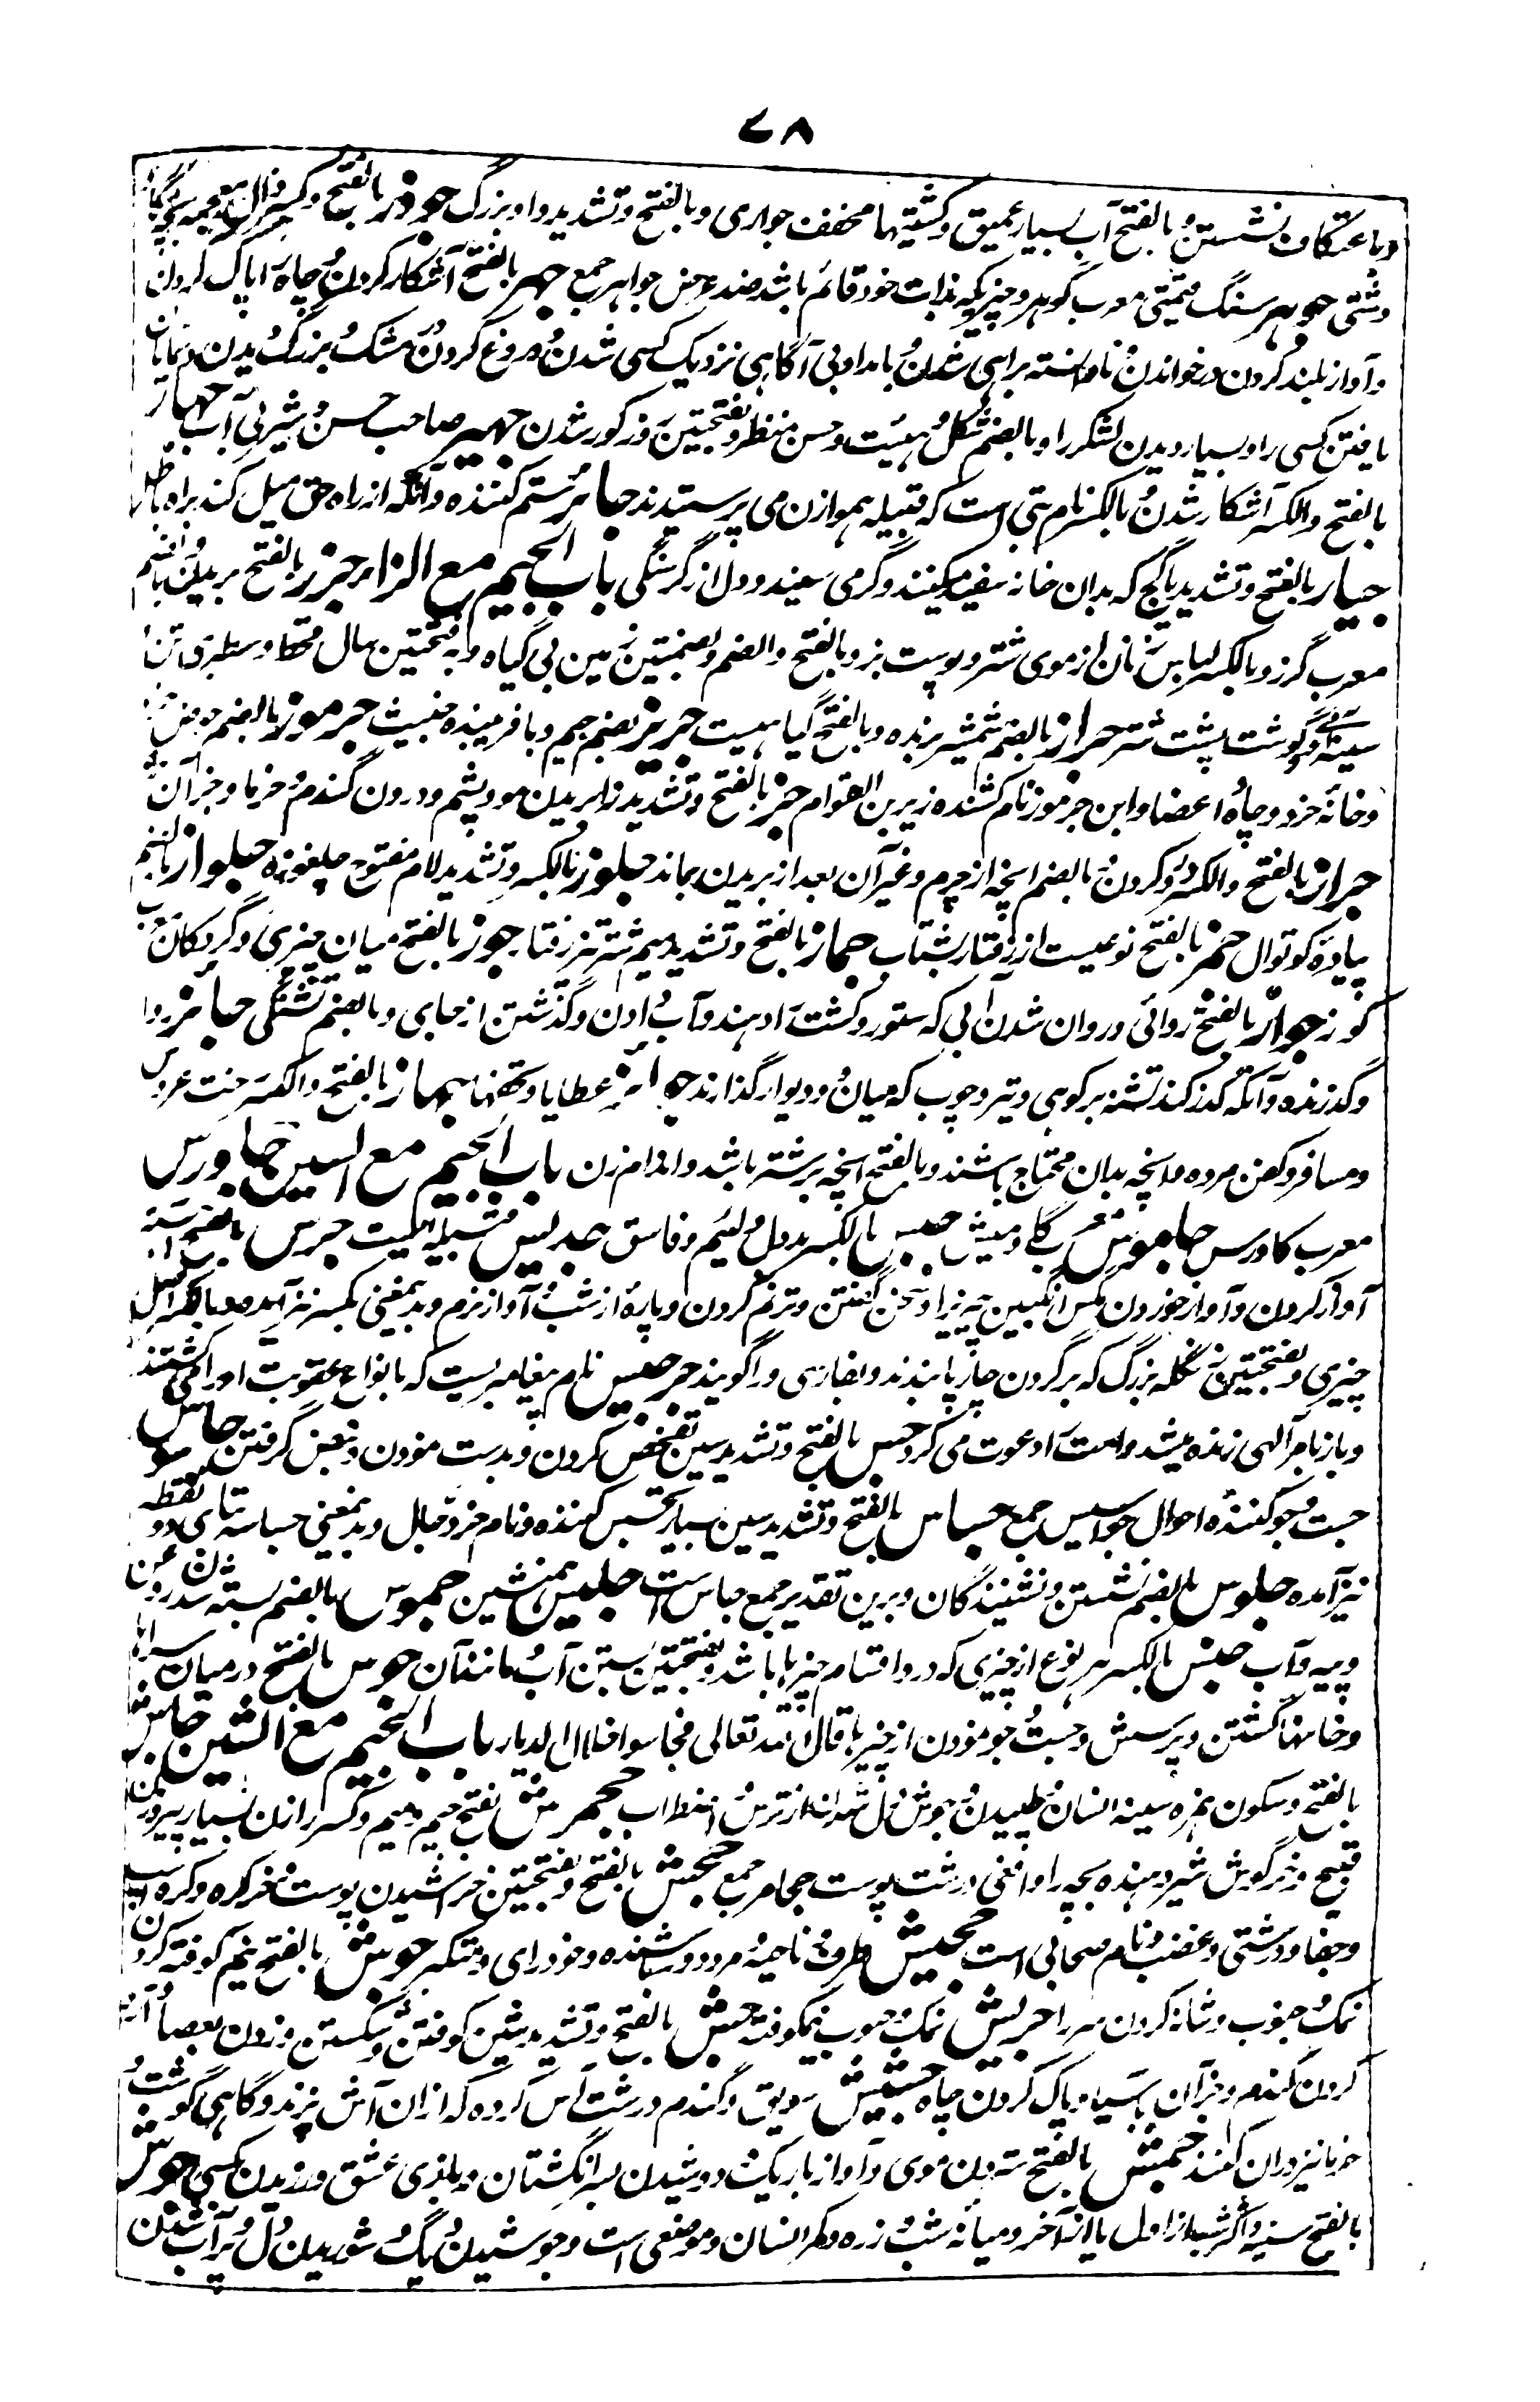 ٧٨
وباعتکاف نشستن و بالفتح آب بسیار عمیق و کشتیها مخفف جواری و بالفتح و تشدید واو بزرگ جوذر بالفتح و کسر ذال معجمه بچه گاو
دشتی جوهر سنگ قیمتی معرب گوهر و چیزیکه بذات خود قائم باشد ضد عرض جواهر جمع جهر بالفتح آشکار کردن و چاه را پاک کردن
وآواز بلند کردن در خواندن و نادانسته براهی شدن و بامداد بی آگاهی نزدیک کسی شدن و دروغ کردن مشک و بزرگ دیدن و نمایان
یافتن کسی را و بسیار دیدن لشکر را و بالضم شکل و هیئت و حسن منظر و بفتحتین روز کور شدن جهیر صاحب حسن و شیر بی آب جهار
بالفتح والکسر آشکار شدن و بالکسر نام بتی است که قبیله هوازن می پرستیدند جبائر ستم کننده وآنکه از راه حق میل کند براه باطل
جیار بالفتح و تشدید یا گچ که بدان خانه سفید میکنند و گرمی سینه و دل از گرسنگی باب الجیم مع الزاء جزر بالفتح بریدن و بالضم
معرب گرز و بالکسر لباس زنان از موی شتر و پوست بز و بالفتح والضم و بضمتین زمین بی گیاه و به فتحتین سال قحط و سطبری تن
سینه و گوشت پشت شتر جراز بالضم شمشیر برنده و بالفتح گیاهیست جربز بضم جیم و با فریبنده خبیث جرموز بالضم حوض
وخانه خرد و چاه و اعضا و ابن جرموز نام کشنده زبیر بن العوام جز بالفتح و تشدید زا بریدن مو و پشم و درون گندم و خرما و جز آن
جزاز بالفتح والکسر درو کردن و بالضم آنچه از چرم و غیر آن بعد از بریدن بماند جلوز بالکسر و تشدید لام مفتوح چلغوزه جلواز بالکسر
پیاده کوتوال جمز بالفتح نوعیست از رفتار بشتاب جماز بالفتح و تشدید میم شتر تیز رفتار جوز بالفتح میان چیزی و گردکان معرب
گوز جواز بالفتح روائی و روان شدن آبی که ستور و کشت را دهند و آب دادن و گذشتن از جای و بالضم تشنگی جائز روا
وگذرنده وآنکه گذر کند تشنه بر کوهی و تیر و چوب که میان دو دیوار گذارند جوائز عطایا و تحفها جهاز بالفتح والکسر رخت عروس
ومسافر و کفن مرده و آنچه بدان محتاج باشند و بالفتح آنچه بر شتر باشد و اندام زن باب الجیم مع السین جاورس
معرب کاورس جاموس معرب گاو میش جبس بالکسر بد دل و لئیم و فاسق جدیس قبیله ایست جرس بالفتح آهسته
آواز کردن و آواز خوردن مگس انگبین چیزیرا و سخن گفتن و ترنم کردن و پارهٔ از شب و آواز نرم و بدینمعنی بکسر نیز آمده و بالکسر اصل
چیزی و بفتحتین زنگله بزرگ که بر گردن چارپا بندند و بفارسی درا گویند جرجیس نام پیغامبریست که بانواع عقوبت او را می کشتند
وباز بامر آلهی زنده میشد و امت را دعوت می کرد جس بالفتح و تشدید سین تفحص کردن و بدست سودن و نبض گرفتن جاسوس
جست و جو کنندهٔ احوال جواسیس جمع جساس بالفتح و تشدید سین بسیار تجسس کننده و نام مردی قاتل و بدینمعنی جساسه بتای دو نقطه
نیز آمده جلوس بالضم نشستن و نشینندگان و برین تقدیر جمع جالس است جلیس همنشین جموس بالضم بسته شدن روغن
وپیه و آب جنس بالکسر هر نوع از چیزی که در و اقسام چیزها باشد و بفتحتین بستن آب و مانند آن جوس بالفتح در میان سراها
وخانها گشتن و پرسش و جست و جو نمودن از چیزها قال الله تعالی فجاسوا خلال الدیار باب الجیم مع الشین جاش
بالفتح و سکون همزه سینه انسان و طپیدن و جوش دل و گریز از ترس و اضطراب جحمرش بفتح جیم و میم و کسر را زن بسیار پیر و زن
قبیح و خرگوش شیر دهنده بچه را و افعی درشت پوست جحامر جمع جحش بالفتح و بفتحتین خراشیدن پوست و خر کره و کره اسپ
وجفا و درشتی و غضب و نام صحابی است جحیش طرف و ناحیه و مرد دور باشنده و خود رای و متکبر جرش بالفتح نیم کوفته کردن
نمک و حبوب و شانه کردن سر را جریش نمک و حبوب نیم کوفته جش بالفتح و تشدید شین کوفتن و شکستن و زدن بعصا و آرد
کردن گندم و جز آن بآسیا و پاک کردن چاه جشیش سویق و گندم درشت آس کرده که از آن آش پزند و گاهی گوشت و
خرما نیز در آن کنند جمش بالفتح ستردن موی و آواز باریک و دوشیدن بسر انگشتان و بازی عشق ورزیدن بکسی جوش
بالفتح سینه و اکثر شب از اول یا از آخر و میانه شب و زره و کمر انسان و موضعی است و جوشیدن دیگ و شوریدن دل و پر آب شدن